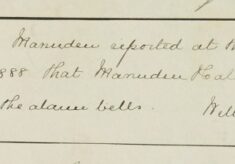 Manuden reported at th
1888 that Manuden
the alarm bells. Will